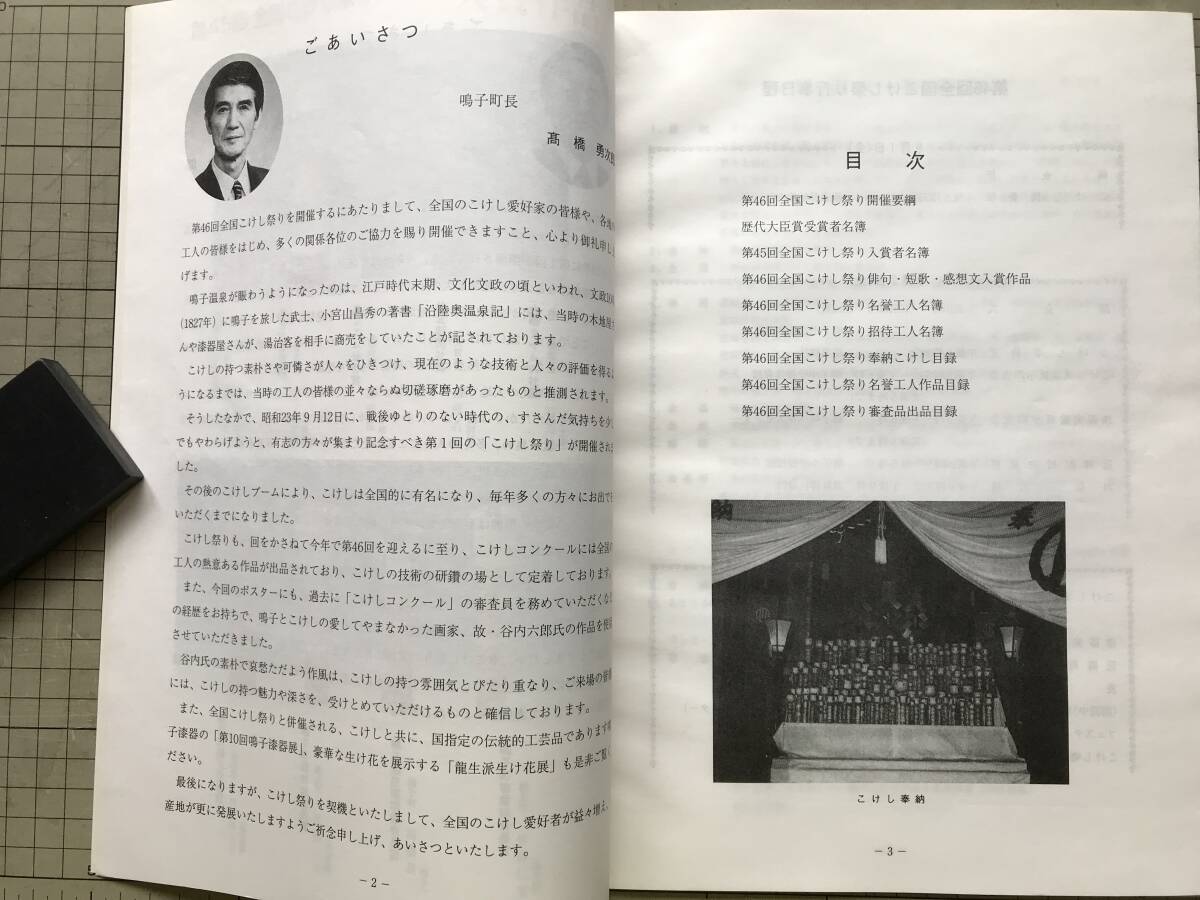 ごあいさつ
鳴子町長
髙橋 勇次
第46回全国こけし祭りを開催するにあたりまして、全国のこけし愛好家の皆様や、各地
工人の皆様をはじめ、多くの関係各位のご協力を賜り開催できますこと、心より御礼申し
げます。
鳴子温泉が賑わうようになったのは、江戸時代末期、文化文政の頃といわれ、文政10
(1827年)に鳴子を旅した武士、小宮山昌秀の著書「沿陸奥温泉記」には、当時の木地
んや漆器屋さんが、湯治客を相手に商売をしていたことが記されております。
こけしの持つ素朴さや可憐さが人々をひきつけ、現在のような技術と人々の評価を得る
うになるまでは、当時の工人の皆様の並々ならぬ切磋琢磨があったものと推測されます。
そうしたなかで、昭和23年9月12日に、戦後ゆとりのない時代の、すさんだ気持ちを少
でもやわらげようと、有志の方々が集まり記念すべき第1回の「こけし祭り」が開催され
した。
その後のこけしブームにより、こけしは全国的に有名になり、毎年多くの方々にお出で
いただくまでになりました。
こけし祭りも、回をかさねて今年で第46回を迎えるに至り、こけしコンクールには全国
工人の熱意ある作品が出品されており、こけしの技術の研鑽の場として定着しております。
また、今回のポスターにも、過去に「こけしコンクール」の審査員を務めていただくな
の経歴をお持ちで、鳴子とこけしの愛してやまなかった画家、故・谷内六郎氏の作品を使
させていただきました。
谷内氏の素朴で哀愁ただよう作風は、こけしの持つ雰囲気とぴたり重なり、ご来場の皆
には、こけしの持つ魅力や深さを、受けとめていただけるものと確信しております。
また、全国こけし祭りと併催される、こけしと共に、国指定の伝統的工芸品であります
子漆器の「第10回鳴子漆器展」、豪華な生け花を展示する「龍生派生け花展」も是非ご覧
ださい。
最後になりますが、こけし祭りを契機といたしまして、全国のこけし愛好者が益々増え、
産地が更に発展いたしますようご祈念申し上げ、あいさつといたします。
－2－
目 次
第46回全国こけし祭り開催要綱
歴代大臣賞受賞者名簿
第45回全国こけし祭り入賞者名簿
第46回全国こけし祭り俳句・短歌・感想文入賞作品
第46回全国こけし祭り名誉工人名簿
第46回全国こけし祭り招待工人名簿
第46回全国こけし祭り奉納こけし目録
第46回全国こけし祭り名誉工人作品目録
第46回全国こけし祭り審査品出品目録
こけし奉納
－3－